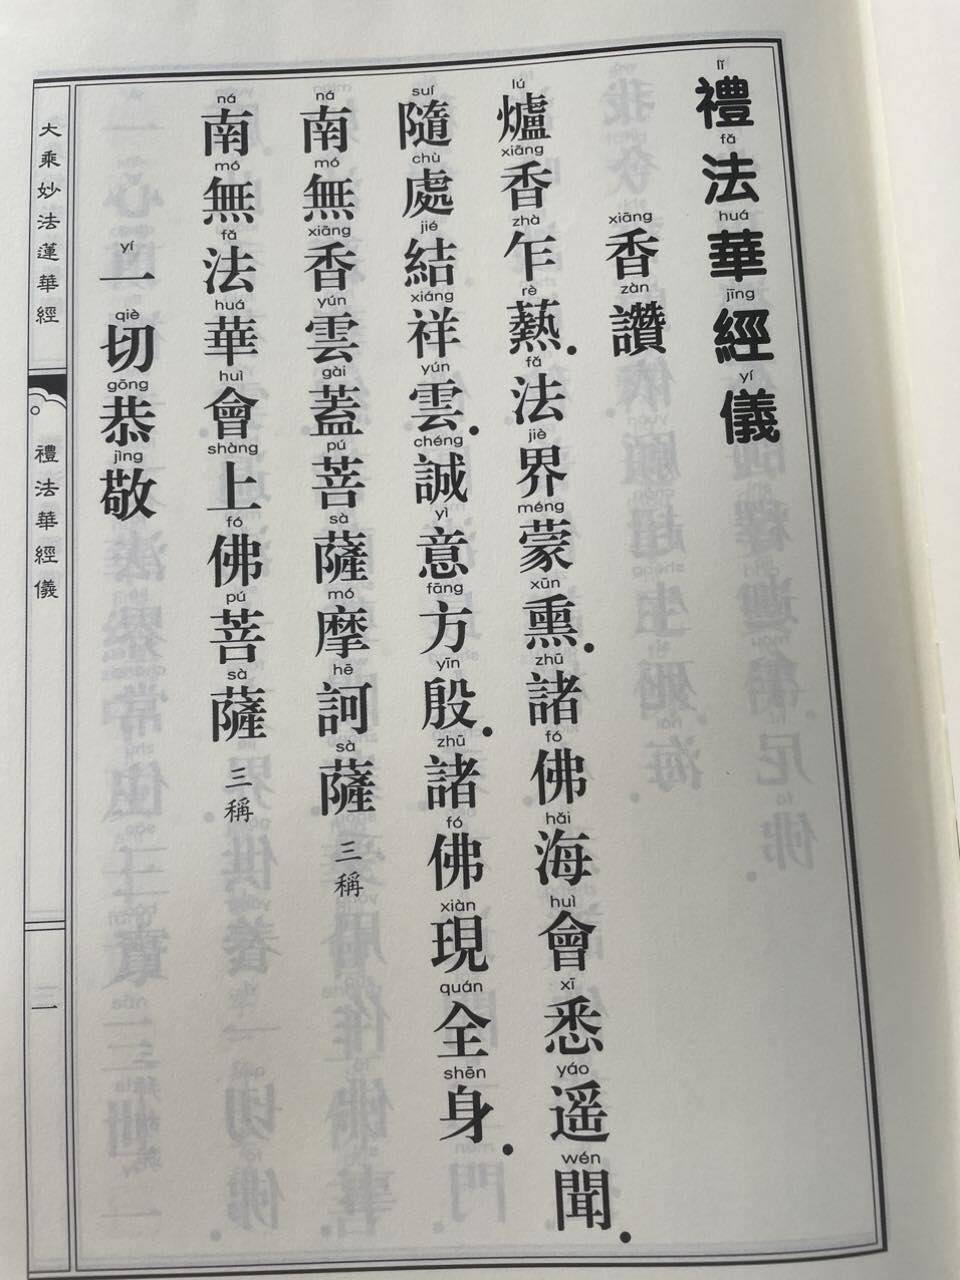 禮法華經儀
lǐ fǎ huá jīng yí
香讚
xiāng zàn
爐香乍爇．法界蒙熏．諸佛海會悉遥聞．
lú xiāng zhà rè fǎ jiè méng xūn zhū fó hǎi huì xī yáo wén
隨處結祥雲．誠意方殷．諸佛現全身．
suí chù jié xiáng yún chéng yì fāng yīn zhū fó xiàn quán shēn
南無香雲蓋菩薩摩訶薩 三稱
ná mó xiāng yún gài pú sà mó hē sà
南無法華會上佛菩薩 三稱
ná mó fǎ huá huì shàng fó pú sà
一切恭敬
yí qiè gōng jìng
大乘妙法蓮華經
禮法華經儀
一